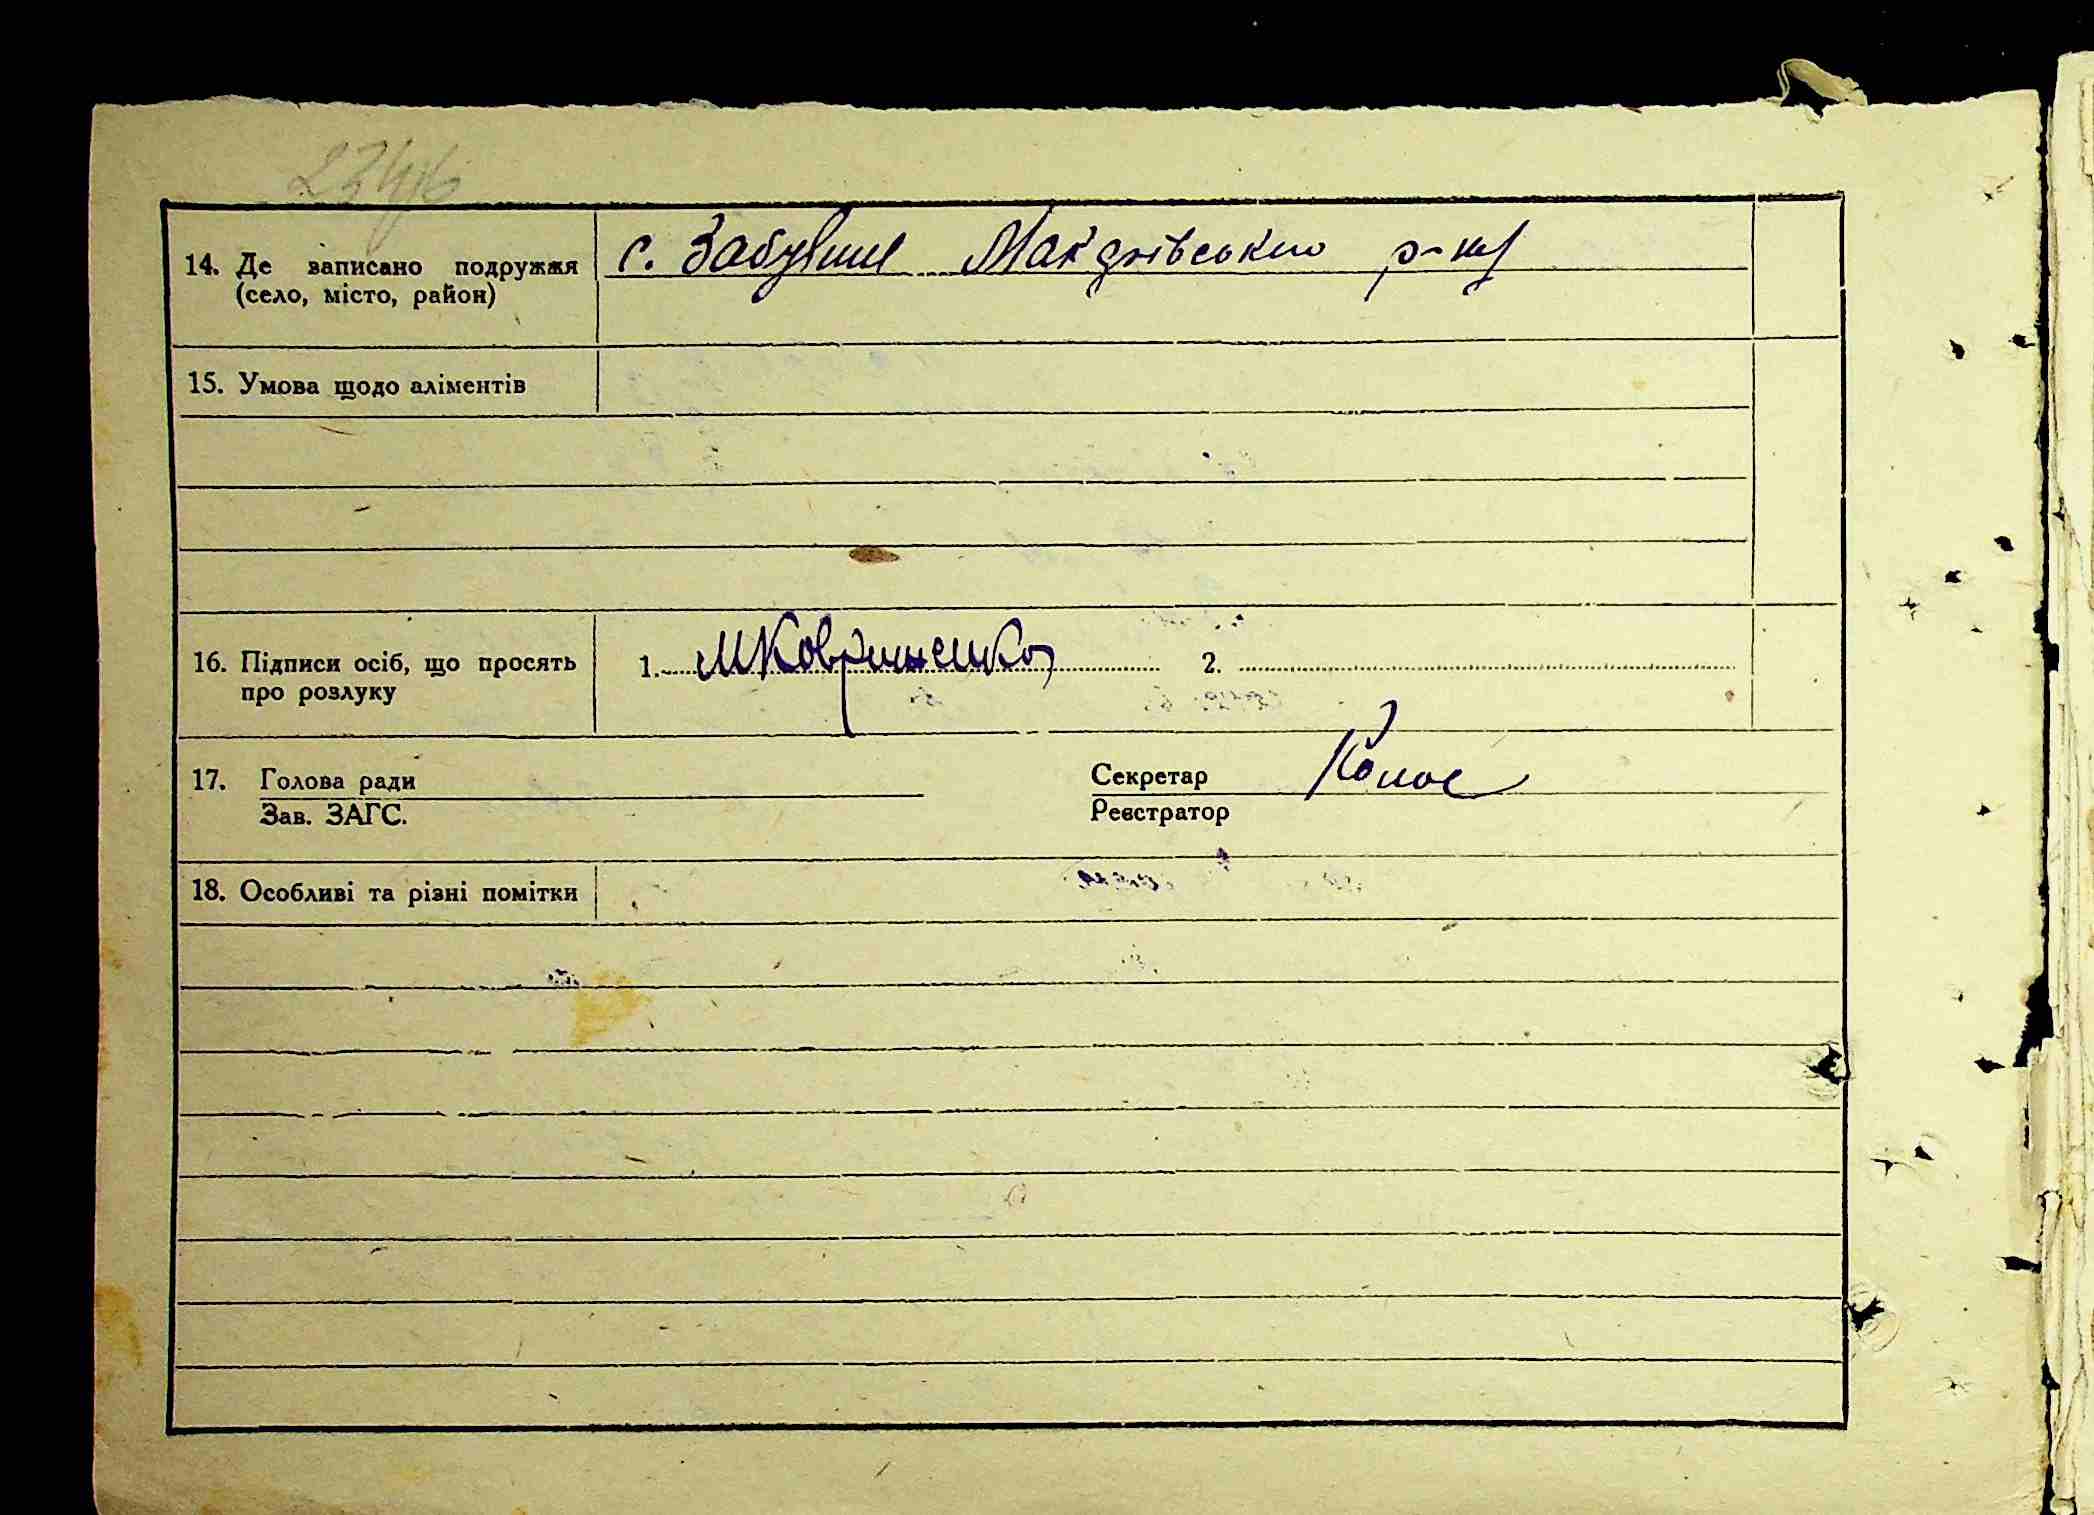 14. Де записано подружжя
(село, місто, район)
с. Забуяння Макарівського р-ну
15. Умова щодо аліментів
16. Підписи осіб, що просять
про розлуку
1. 2.
17. Голова ради
Зав. ЗАГС.
Секретар
Реєстратор
18. Особливі та різні помітки